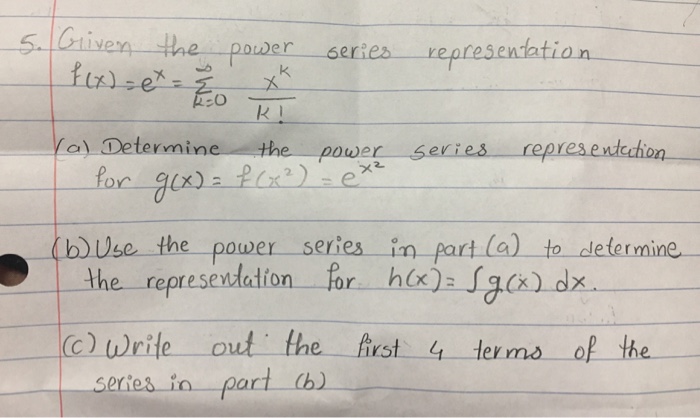 5. Given the power series representation
f(x) = e^x = ∑_{k=0}^{∞} x^k / k!
(a) Determine the power series representation
for g(x) = f(x²) = e^{x²}
(b) Use the power series in part (a) to determine
the representation for h(x) = ∫g(x) dx.
(c) Write out the first 4 terms of the
series in part (b)